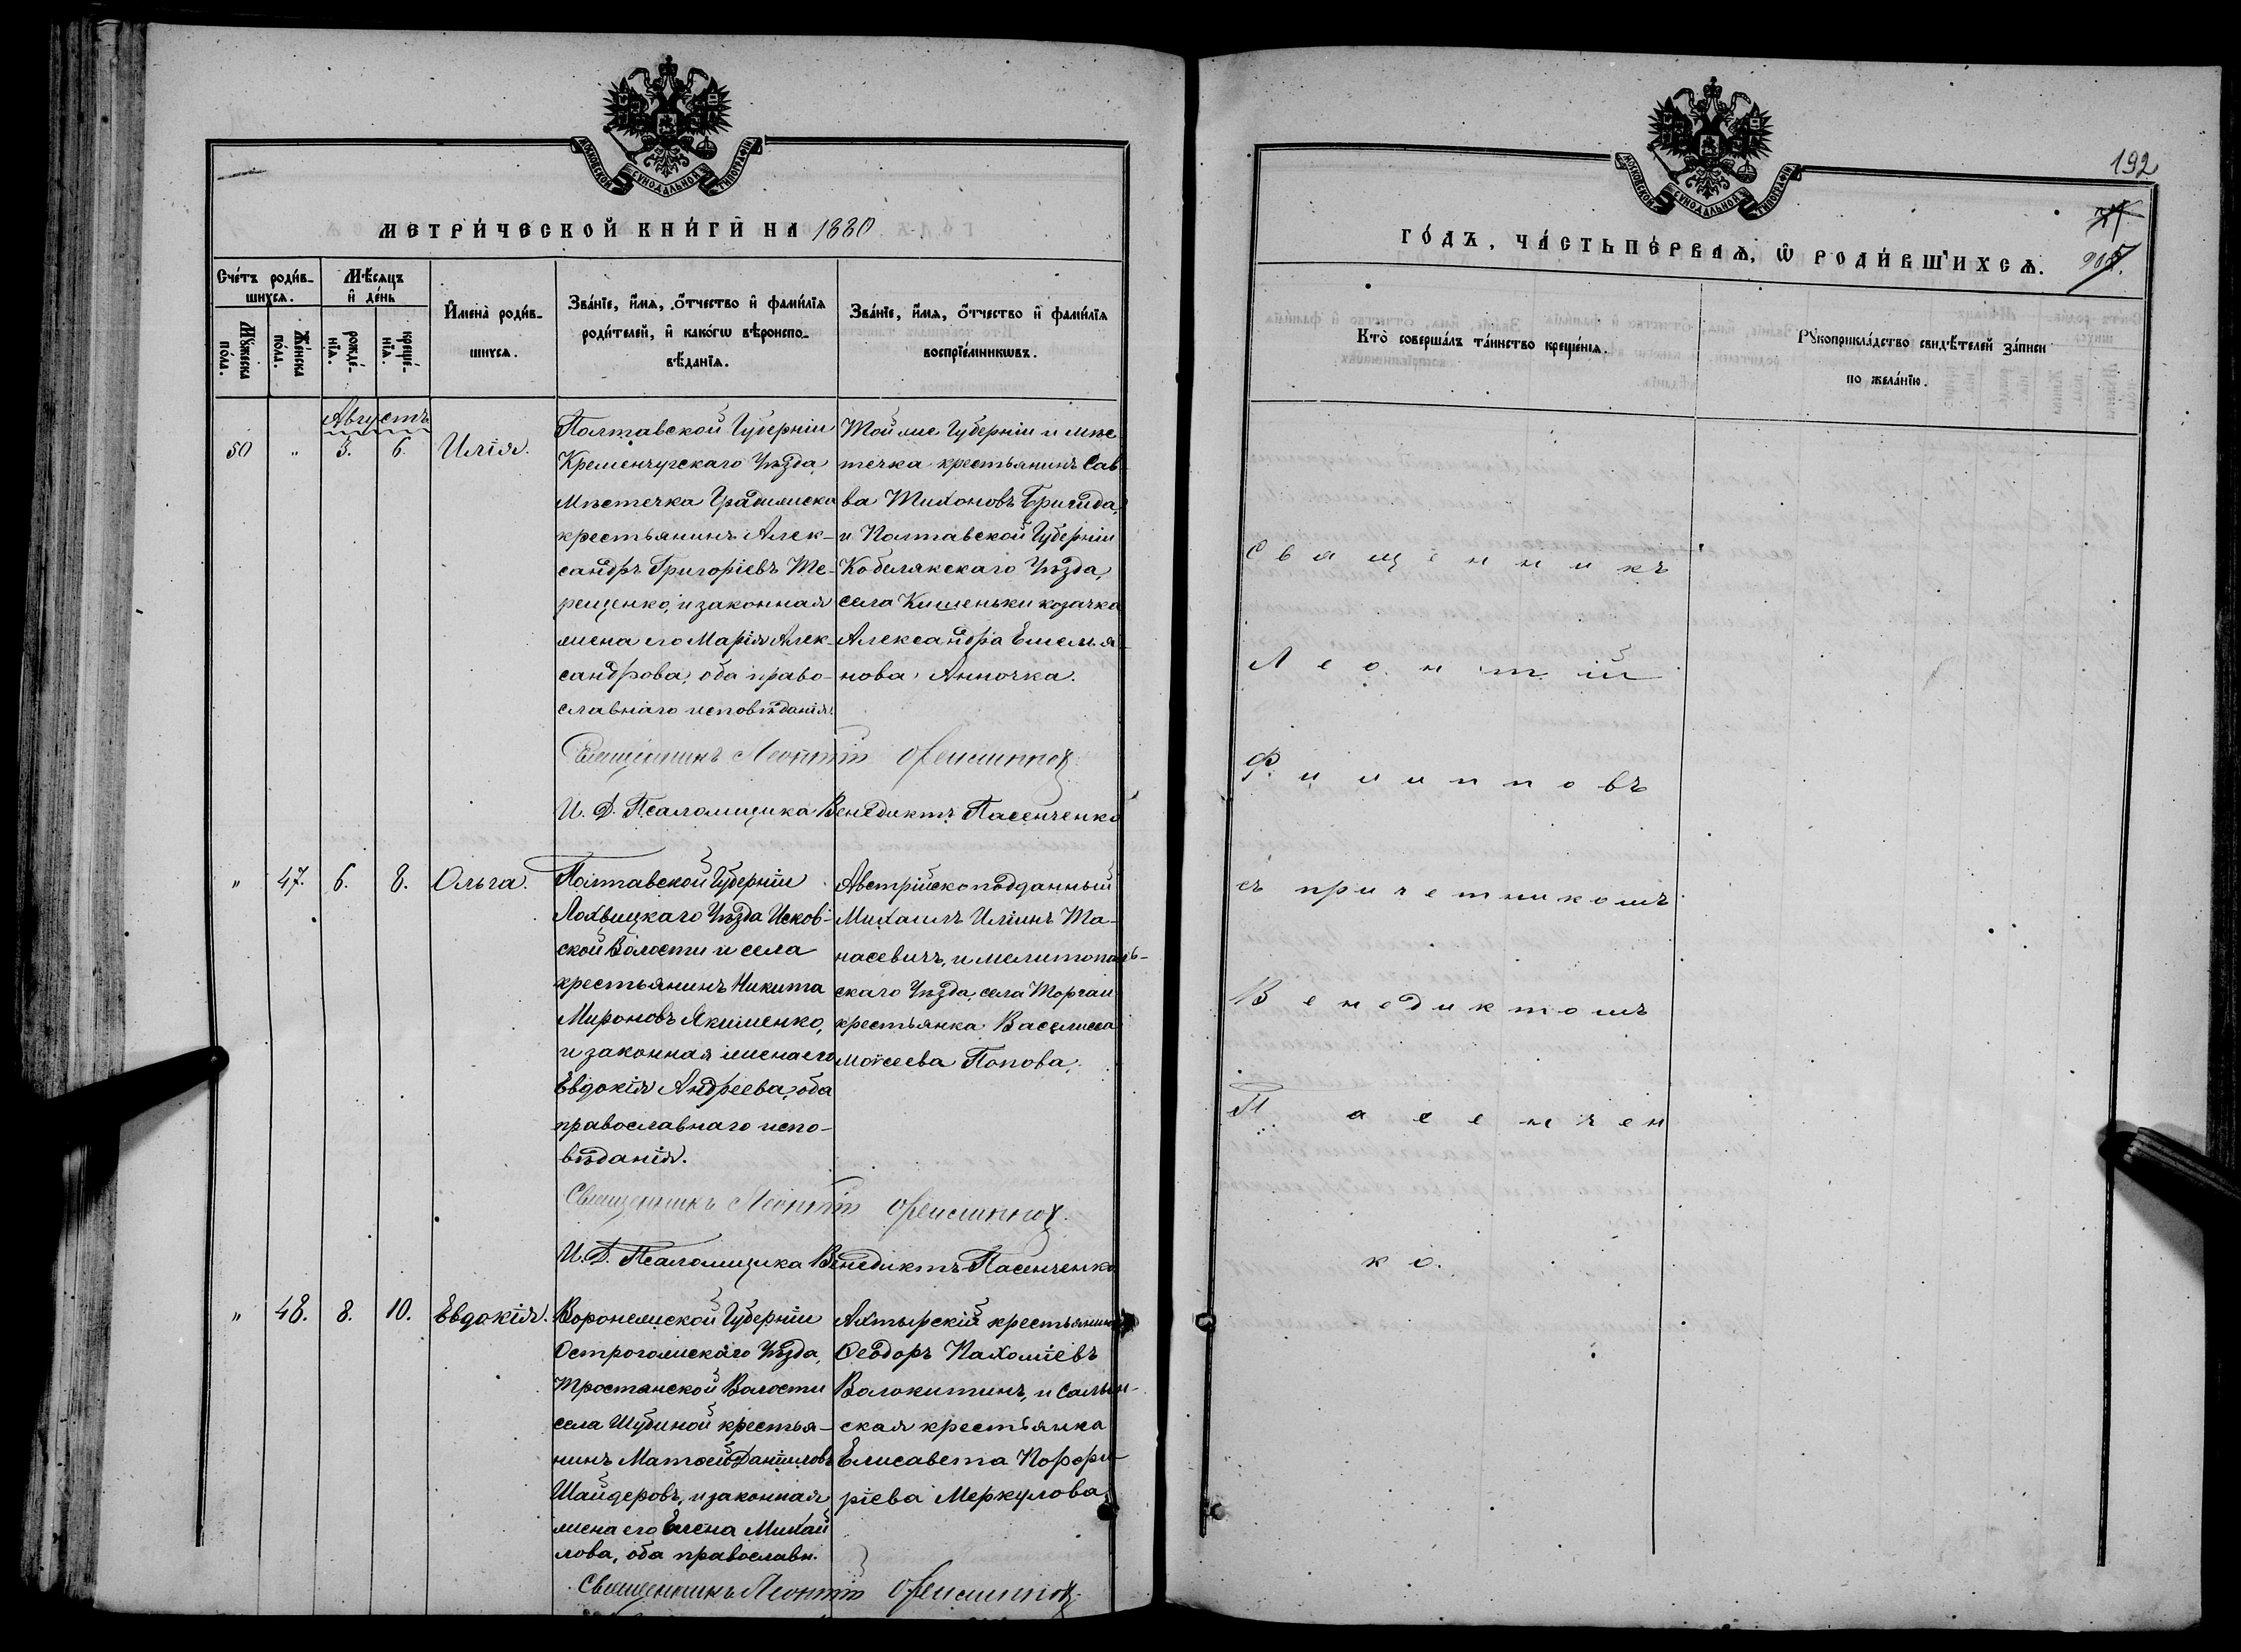 МОСКОВСКОЙ СѴНОДАЛЬНОЙ ТИПОГРАФІИ
МЕТРИ́ЧЕСКОЙ КНИ́ГИ НА 1880
Сче́тъ роди́в-
шихсѧ.
Мꙋ́жеска
по́ла.
Же́нска
по́ла.
Мѣ́сѧцъ
и҆ де́нь
рожде́-
нїѧ.
креще́-
нїѧ.
И҆мена̀ роди́в-
шихсѧ.
Зва́нїе, и҆́мѧ, ѻ҆́тчество и҆ фами́лїѧ
роди́телей, и҆ како́гѡ вѣроиспо-
вѣ́данїѧ.
Зва́нїе, и҆́мѧ, ѻ҆́тчество и҆ фами́лїѧ
воспрїе́мникѡвъ.
Августъ
50 " 3. 6. Илія.
Полтавской Губерніи
Кременчугскаго Уѣзда
Мѣстечка Градижска
крестьянинъ Алек-
сандръ Григоріевъ Те-
рещенко, и законная
жена его Марія Алек-
сандрова, оба право-
славнаго исповѣданія.
Той же Губерніи и мѣс
течка крестьянинъ Сав
ва Тихоновъ Бригида,
и Полтавской Губерніи
Кобелякскаго Уѣзда,
села Кишеньки козачка
Александра Емелья-
нова Анночка.
Священникъ Леонтій Филипповъ
И. Д. Псаломщика Венедиктъ Пасенченко
" 47. 6. 8. Ольга.
Полтавской Губерніи
Лохвицкаго Уѣзда Исков-
ской Волости и села
крестьянинъ Никита
Мироновъ Якименко,
и законная жена его
Евдокія Андреева, оба
православнаго испо-
вѣданія.
Австрійскоподданный
Михаилъ Иліинъ Та-
насевичъ, и мелитополь-
скаго Уѣзда, села Торгаи
крестьянка Васслисса
Моѵсеева Попова.
Священникъ Леонтій Филипповъ
И. Д. Псаломщика Венедиктъ Пасенченко
" 48. 8. 10. Евдокія.
Воронежской Губерніи
Острогожскаго Уѣзда,
Тростанской Волости
села Шубиной крестья-
нинъ Матѳей Даніиловъ
Шайдеровъ, и законная
жена его Елена Михай
лова, оба православн.
Ахтырскій крестьянинъ
Ѳеодоръ Пахоміевъ
Волокитинъ, и Сальын-
ская крестьянка
Елисавета Порфи-
ріева Меркулова
Священникъ Леонтій Филипповъ
МОСКОВСКОЙ СѴНОДАЛЬНОЙ ТИПОГРАФІИ
192
ГО́ДЪ, ЧА́СТЬ ПЕ́РВАѦ, Ѡ҆ РОДИ́ВШИХСѦ.
Кто̀ соверша́лъ та́инство креще́нїѧ.
Рꙋкоприкла́дство свидѣ́телей за́писи
по жела́нїю.
Священникъ
Леонтій
Филипповъ
съ причетникомъ
Венедиктомъ
Пасенчен
ко.